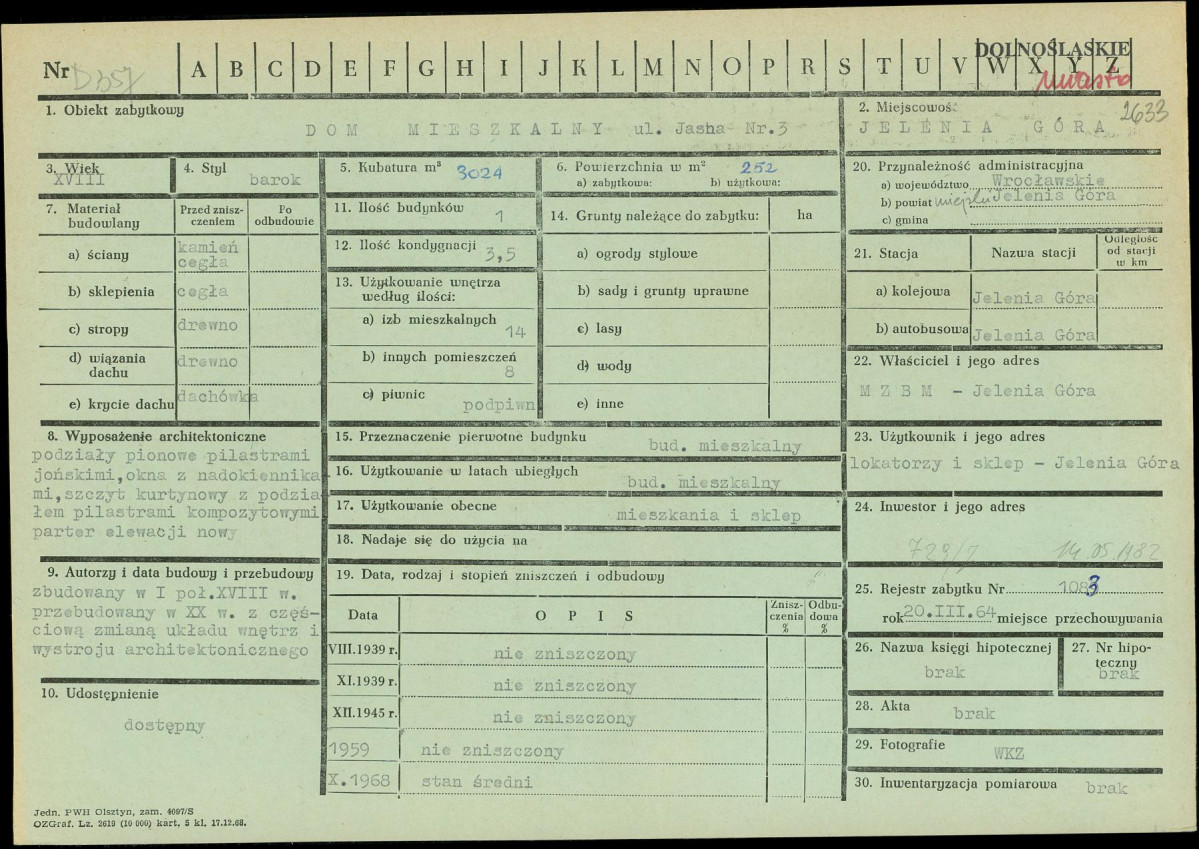 DOLNOŚLĄSKIE
Nr A B C D E F G H I J K L M N O P R S T U V W X Y Z
miasto
1. Obiekt zabytkowy
DOM MIESZKALNY ul. Jasna Nr.3
2. Miejscowość
2633
JELENIA GÓRA
3. Wiek
XVIII
4. Styl
barok
5. Kubatura m³ 3024
6. Powierzchnia w m² 252
a) zabytkowa: b) użytkowa:
20. Przynależność administracyjna
a) województwo Wrocławskie
b) powiat Jelenia Góra
c) gmina
7. Materiał budowlany
Przed zniszczeniem
Po odbudowie
a) ściany kamień cegła
b) sklepienia cegła
c) stropy drewno
d) wiązania dachu drewno
e) krycie dachu dachówka
11. Ilość budynków 1
12. Ilość kondygnacji 3,5
13. Użytkowanie wnętrza
według ilości:
a) izb mieszkalnych 14
b) innych pomieszczeń 8
c) piwnic podpiwn
14. Grunty należące do zabytku: ha
a) ogrody stylowe
b) sady i grunty uprawne
c) lasy
d) wody
e) inne
21. Stacja Nazwa stacji Odległość od stacji w km
a) kolejowa Jelenia Góra
b) autobusowa Jelenia Góra
22. Właściciel i jego adres
M Z B M - Jelenia Góra
8. Wyposażenie architektoniczne
podziały pionowe pilastrami
jońskimi,okna z nadokiennika
mi,szczyt kurtynowy z podzia
łem pilastrami kompozytowymi
parter elewacji nowy
15. Przeznaczenie pierwotne budynku
bud. mieszkalny
16. Użytkowanie w latach ubiegłych
bud. mieszkalny
17. Użytkowanie obecne
mieszkania i sklep
18. Nadaje się do użycia na
23. Użytkownik i jego adres
lokatorzy i sklep - Jelenia Góra
24. Inwestor i jego adres
729/7 14.05.1982
9. Autorzy i data budowy i przebudowy
zbudowany w I poł.XVIII w.
przebudowany w XX w. z częś-
ciową zmianą układu wnętrz i
wystroju architektonicznego
19. Data, rodzaj i stopień zniszczeń i odbudowy
Data OPIS Zniszczenia % Odbudowa %
VIII.1939 r. nie zniszczony
XI.1939 r. nie zniszczony
XII.1945 r. nie zniszczony
1959 nie zniszczony
X.1968 stan średni
25. Rejestr zabytku Nr 1083
rok 20.III.64 miejsce przechowywania
26. Nazwa księgi hipotecznej
brak
27. Nr hipoteczny
brak
10. Udostępnienie
dostępny
28. Akta brak
29. Fotografie WKZ
30. Inwentaryzacja pomiarowa brak
Jedn. PWH Olsztyn, zam. 4097/S
OZGraf. Lz. 2619 (10 000) kart. 5 kl. 17.12.68.